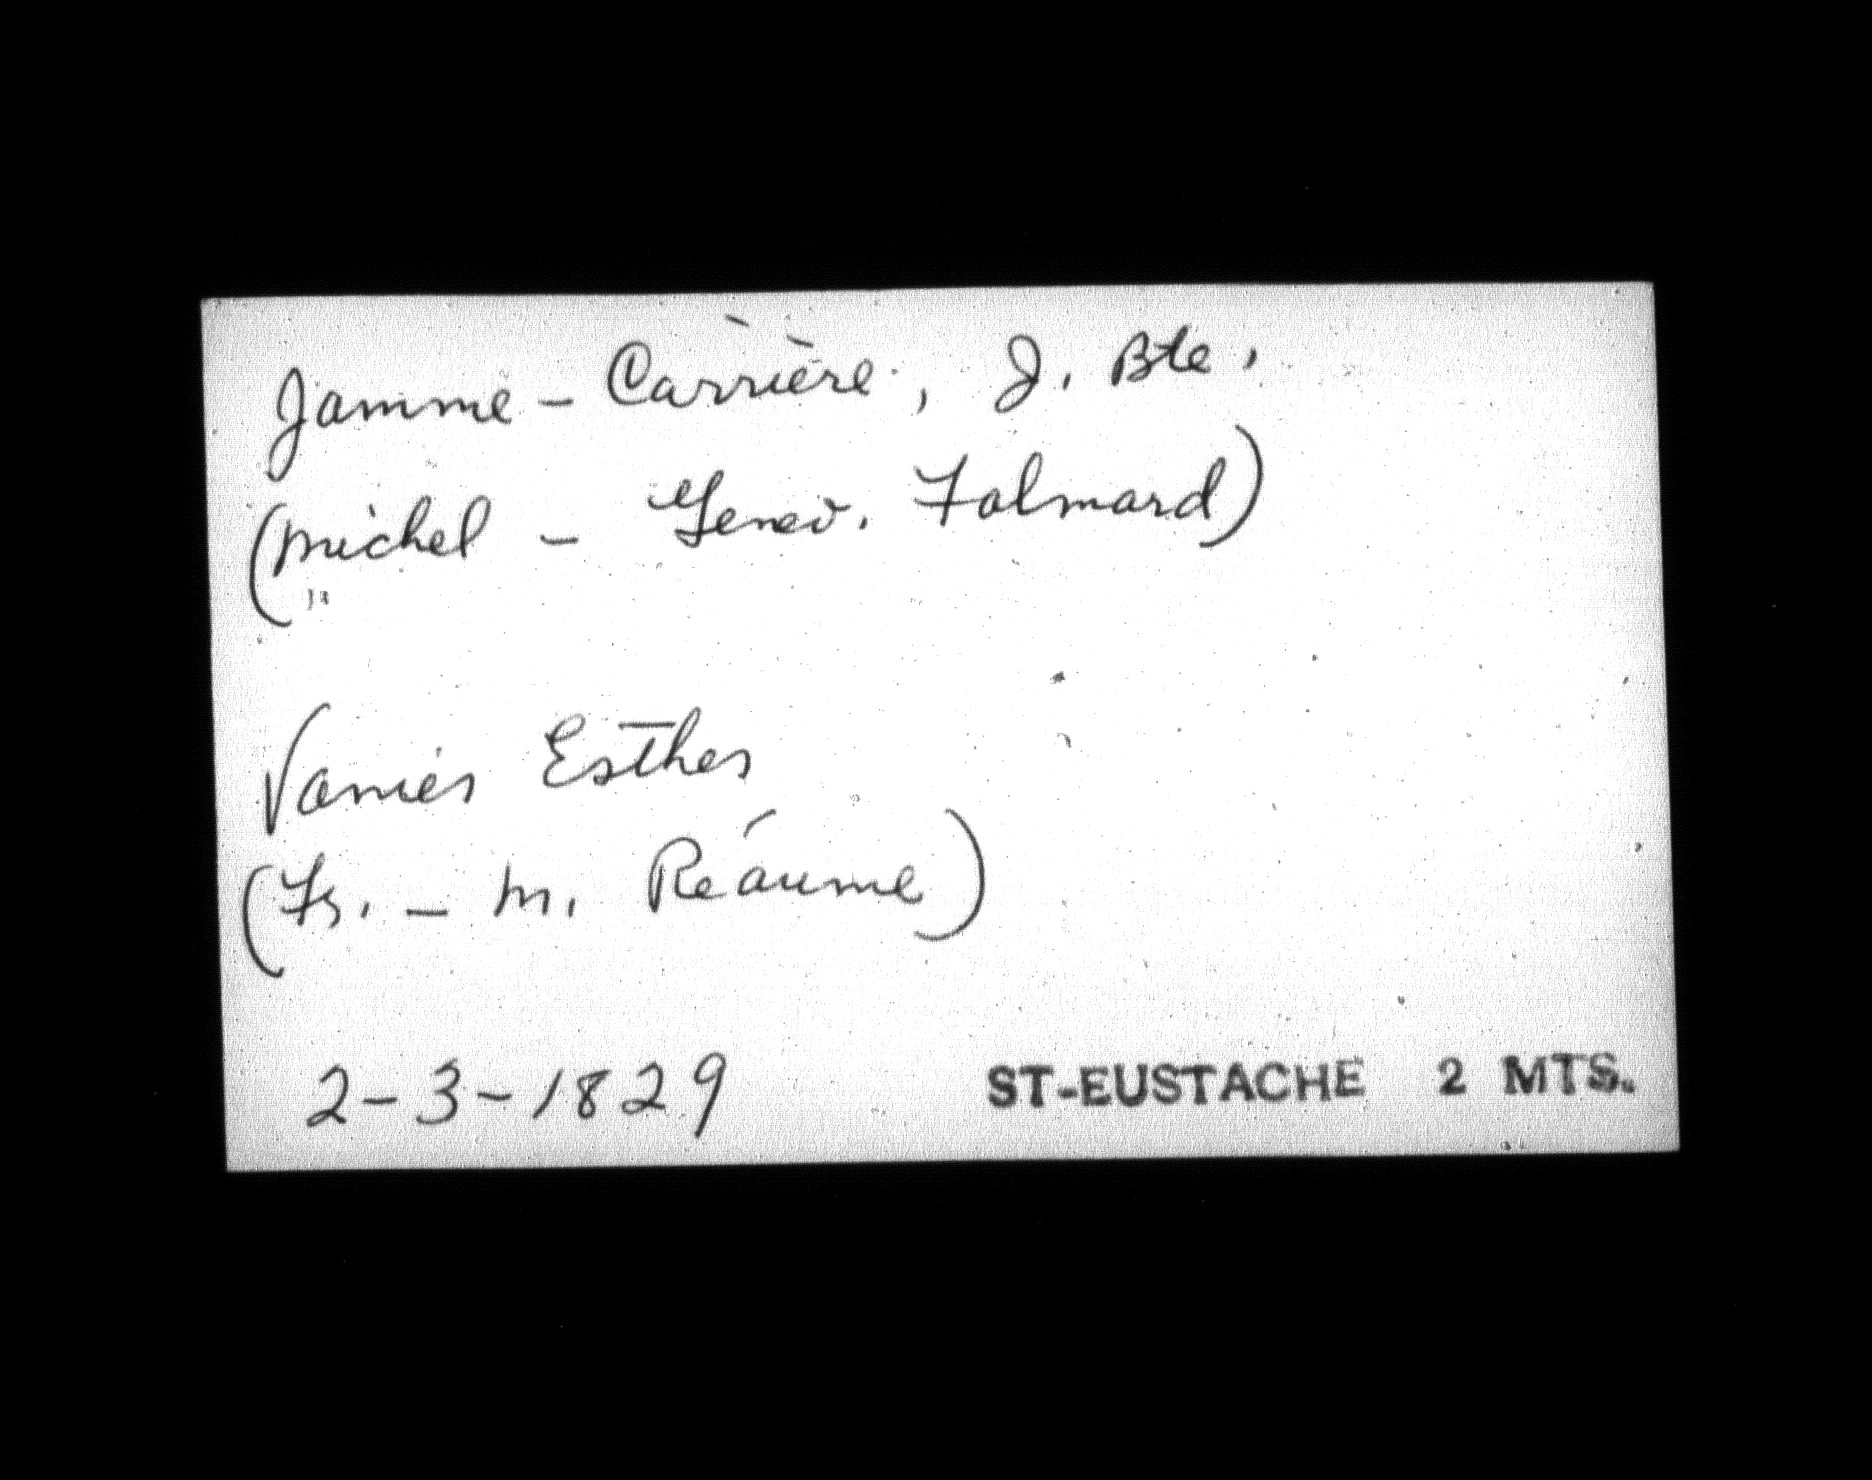 Jamme - Carrière, J. Bte.
(Michel - Genev. Folmard)
Vanier Esther
(Fs. - M. Réaume)
2-3-1829 ST-EUSTACHE 2 MTS.